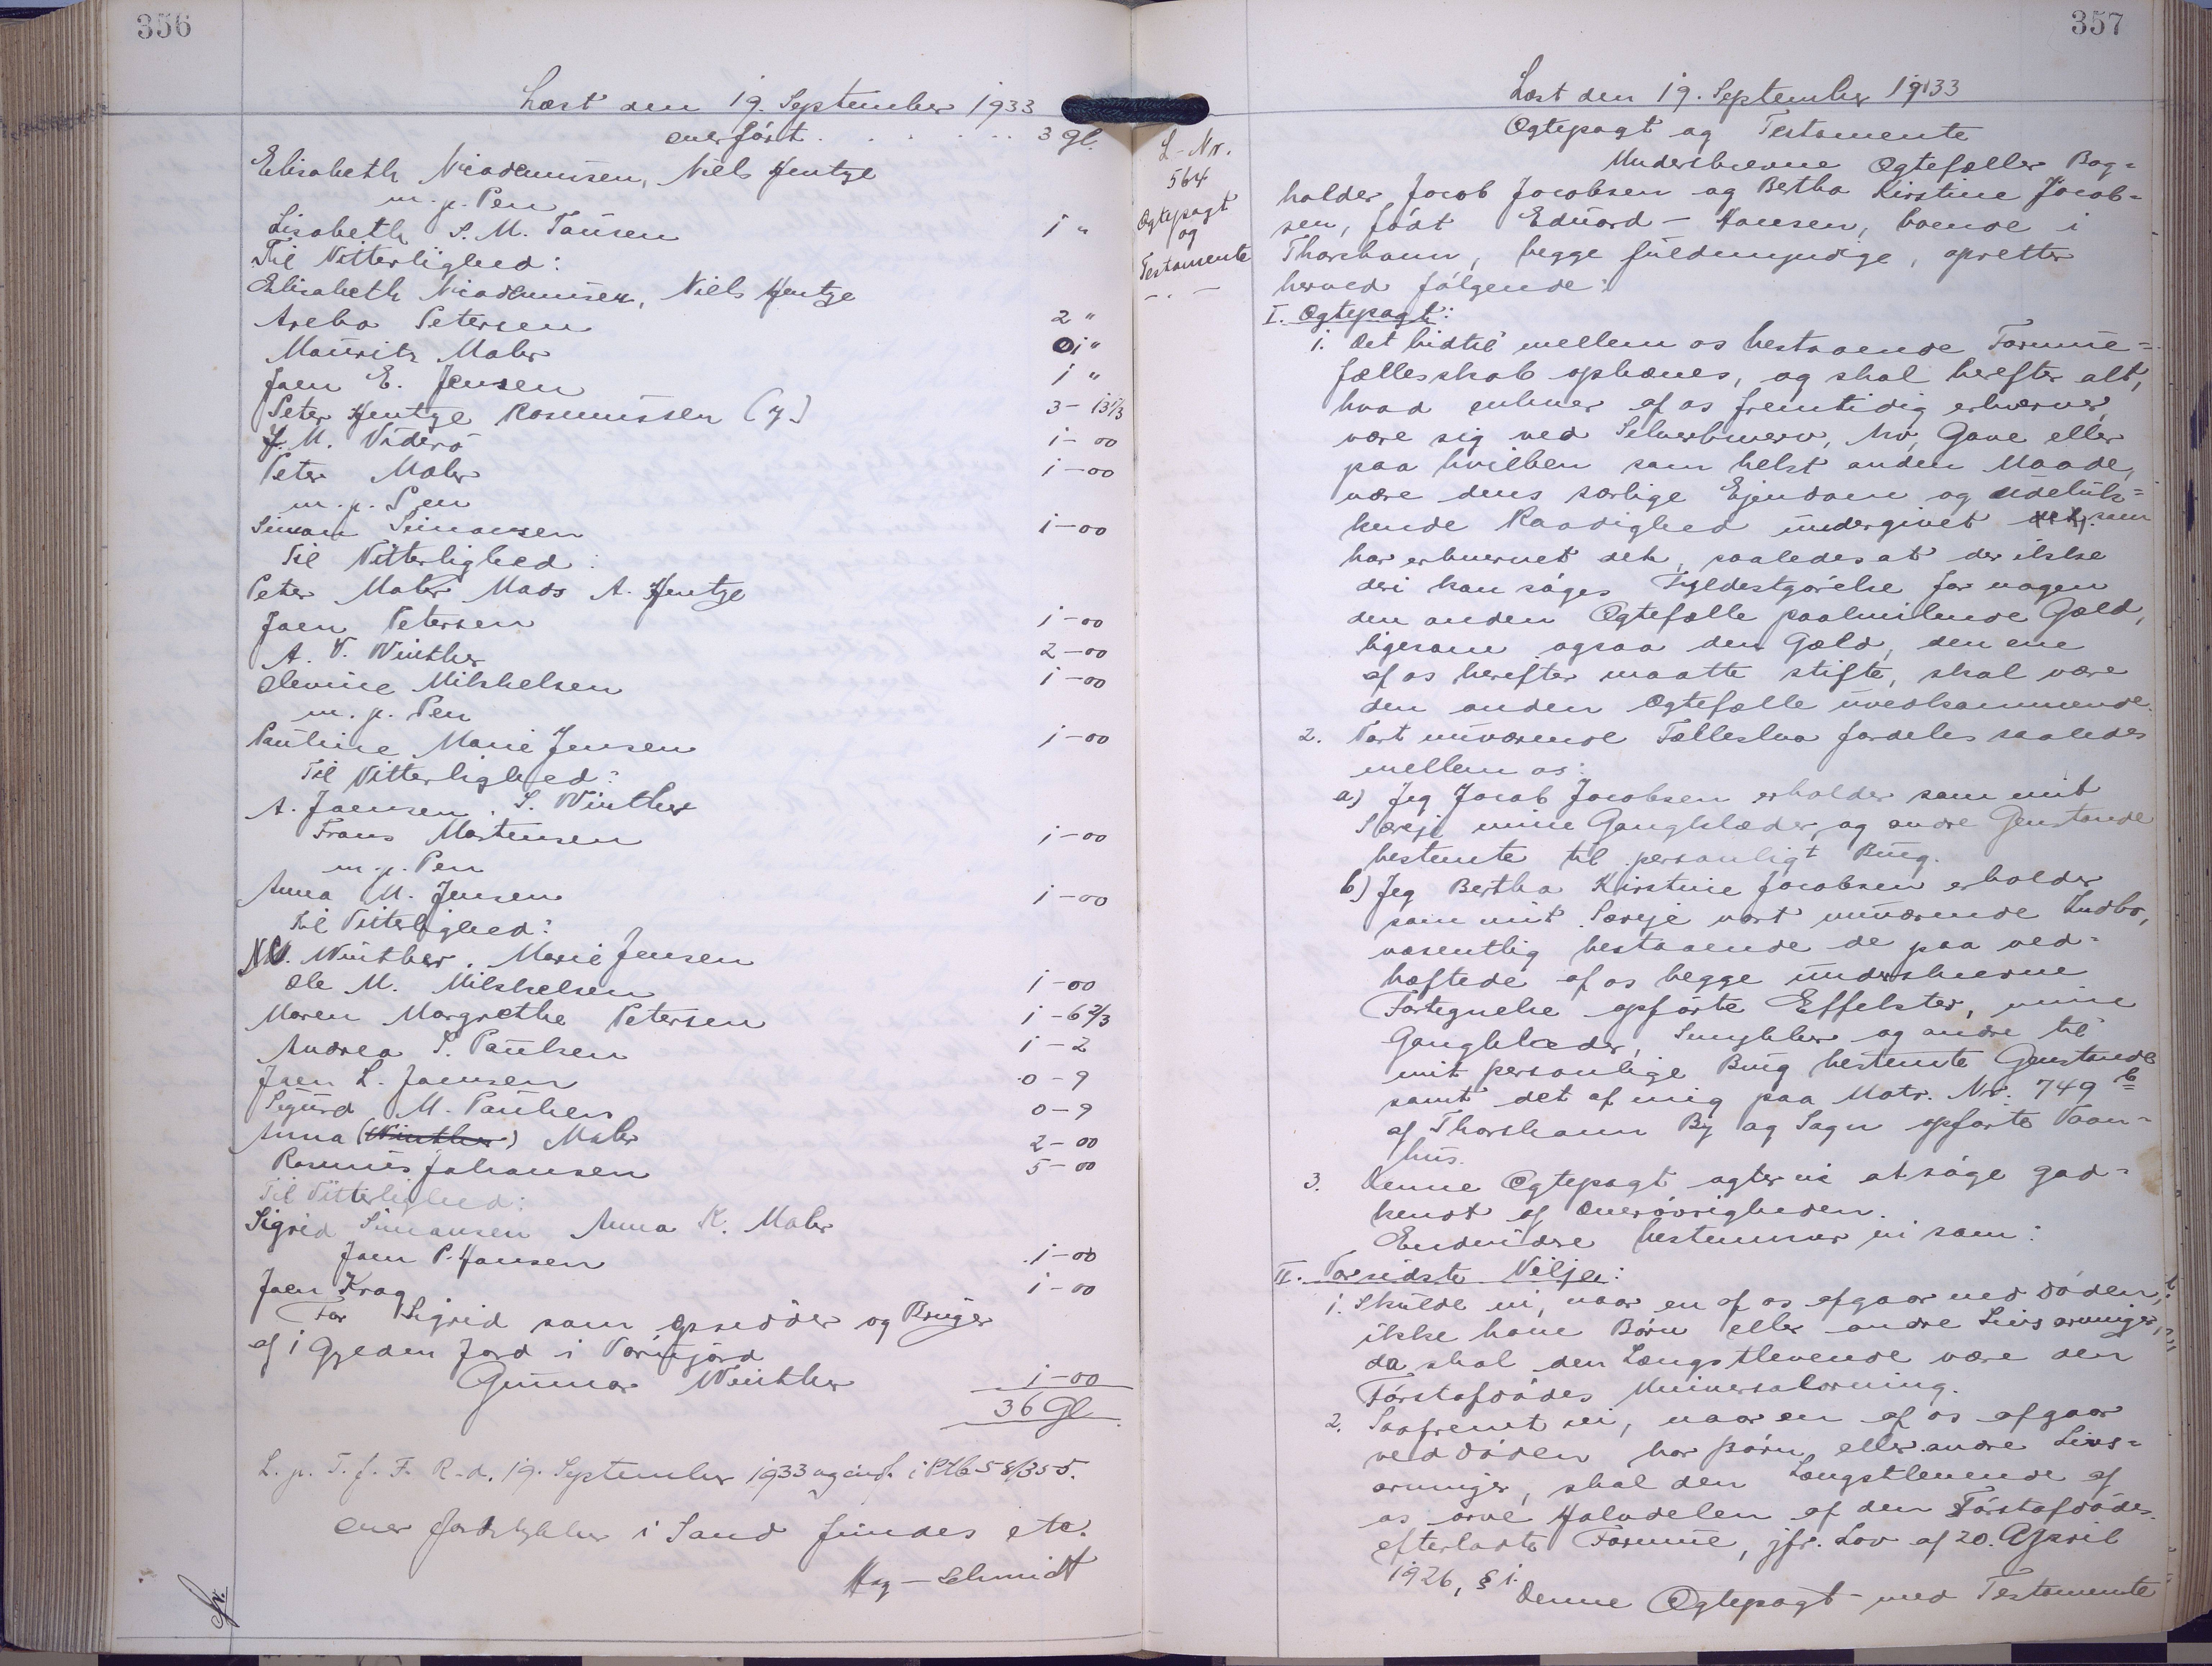 356
Læst den 19. September 1933
overført . . . . . . 3 Gl.
Elisabeth Niodemussen, Niels Hentze
m. p. Pen
Lisabeth S. M. Tausen 1 "
Til Vitterlighed:
Elisabeth Niodemussen, Niels Hentze
Petersen 2 "
Mauritz Mohr 1 "
Joen E. Jensen 1 "
Peter Hentze Rasmussen (y) 3 - 13 1/3
J. M. Viderø 1 - 00
Peter Mohr 1 - 00
m. p. Pen
Simon Simonsen 1 - 00
Til Vitterlighed:
Peter Mohr Mads A. Hentze
Joen Petersen 1 - 00
A. V. Winther 2 - 00
Olevine Mikkelsen 1 - 00
m. p. Pen
Pauline Marie Jensen 1 - 00
Til Vitterlighed:
A. Joensen. S. Winther
Frans Mortensen 1 - 00
m. p. Pen
Anna M. Jensen 1 - 00
Til Vitterlighed:
Winther. Marie Jensen
Ole M. Mikkelsen 1 - 00
Maren Margrethe Petersen 1 - 6 2/3
Andrea P. Paulsen 1 - 2
Joen L. Joensen 0 - 9
Sigurd M. Paulsen 0 - 9
Anna (Winther) Mohr 2 - 00
Rasmus Johansen 5 - 00
Til Vitterlighed:
Sigrid Simonsen Anna K. Mohr
Joen P. Hansen 1 - 00
Joen Krog 1 - 00
For Sigrid som opsidder og Bruger
af 1 Gylden Jord i
Gunnar Winther 1 - 00
36 Gl.
L. p. T. f. F. R-d. 19. September 1933 og indf. i Ptb 58/355.
Over Jordstykker i Sand findes etc.
Hoy-Schmidt
357
Læst den 19. September 1933
L-Nr.
564
Ægtepagt
og
Testamente
- . -
Ægtepagt og Testamente
Underskrevne Ægtefæller Bog=
holder Jacob Jacobsen og Bertha Kirstine Jacob=
sen, født Eduard-Hansen, boende i
Thorshavn, begge fuldmyndige, opretter
herved følgende:
I. Ægtepagt:
1. Det hidtil mellem os bestaaende Formue=
fællesskab ophæves, og skal herefter alt,
hvad enhver af os fremtidig erhverver,
være sig ved Selverhverv, Arv, Gave eller
paa hvilken som helst anden Maade,
være dens særlige Ejendom og udeluk=
kende Raadighed undergivet som
har erhvervet det, saaledes at der ikke
deri kan søges Fyldestgørelse for nogen
den anden Ægtefælle paahvilende Gæld,
ligesom ogsaa den Gæld, den ene
af os herefter maatte stifte, skal være
den anden Ægtefælle uvedkommende.
2. Vort nuværende Fællesbo fordeles saaledes
mellem os:
a.) Jeg Jacob Jacobsen erholder som mit
Særeje mine Gangklæder, og andre Genstande
bestemte til personligt Brug.
b) Jeg Bertha Kirstine Jacobsen erholder
som mit Særeje vort nuværende Indbo,
væsentlig bestaaende de paa ved=
hæftede af os begge underskrevne
Fortegnelse opførte Effekter, mine
Gangklæder, Smykker og andre til
mit personlige Brug bestemte Genstande
samt det af mig paa Matr. Nr. 749 b
af Thorshavn By og Sogn opførte Vaan=
hus.
3. Denne Ægtepagt agter vi at søge god=
kendt af Overøvrigheden.
Endvidre bestemmer vi som:
II. Vor sidste Vilje:
1. Skulde vi, naar en af os afgaar ved Døden,
ikke have Børn eller andre Livsarvinger,
da skal den Længstlevende være den
Førstafdødes Universalarving.
2. Saafremt vi, naar en af os afgaar
ved Døden, har Børn, eller andre Livs=
arvinger, skal den Længstlevende af
os arve Halvdelen af den Førstafdødes
efterladte Formue, jfr. Lov af 20. April
1926, § 1.
Denne Ægtepagt med Testamente